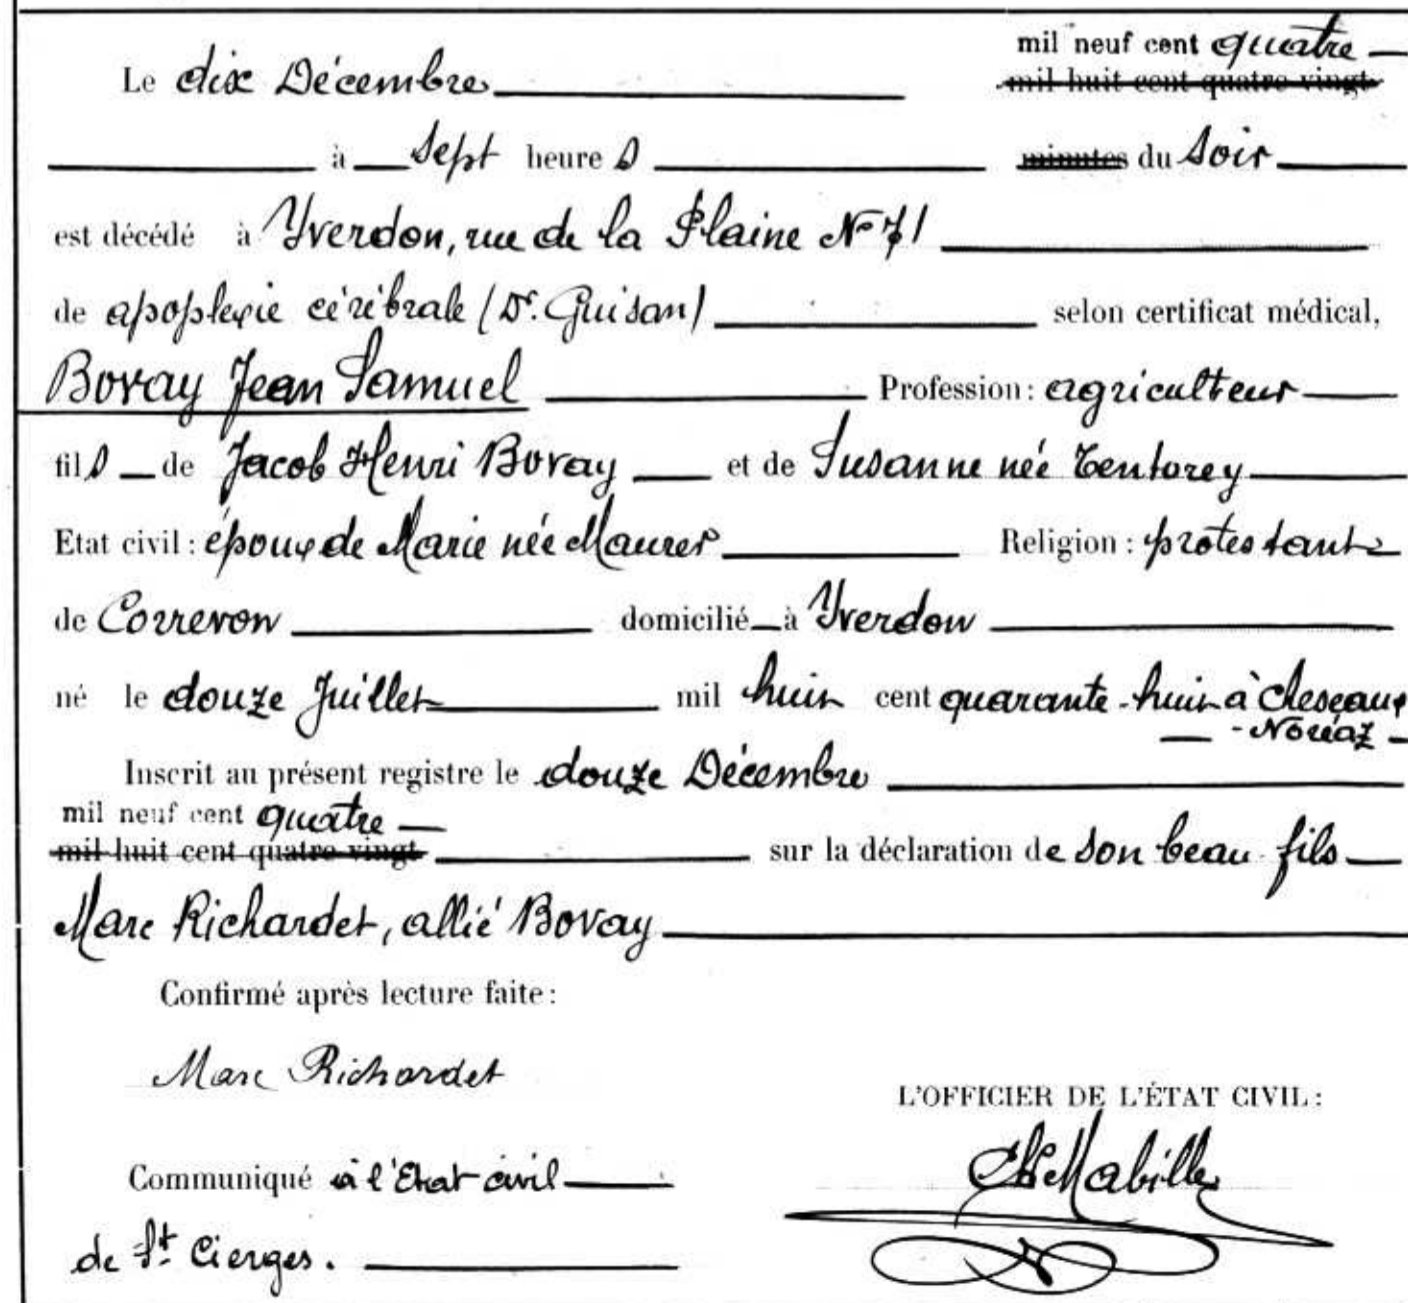 mil neuf cent quatre
Le dix Décembre mil huit cent quatre-vingt
à sept heures minutes du soir
est décédé à Yverdon, rue de la Plaine No 71
de apoplexie cérébrale (Dr. Guisan) selon certificat médical,
Bovay Jean Samuel Profession : agriculteur
fils de Jacob Henri Bovay et de Susanne née Tentorey
Etat civil : époux de Marie née Maurer Religion : protestante
de Correvon domicilié à Yverdon
né le douze Juillet mil huit cent quarante-huit à Cheseaux
-Noréaz
Inscrit au présent registre le douze Décembre
mil neuf cent quatre
mil huit cent quatre-vingt sur la déclaration de son beau-fils
Marc Richardet, allié Bovay
Confirmé après lecture faite :
Marc Richardet
L'OFFICIER DE L'ÉTAT CIVIL :
Mabille
Communiqué à l'Etat civil
de St Cierges.